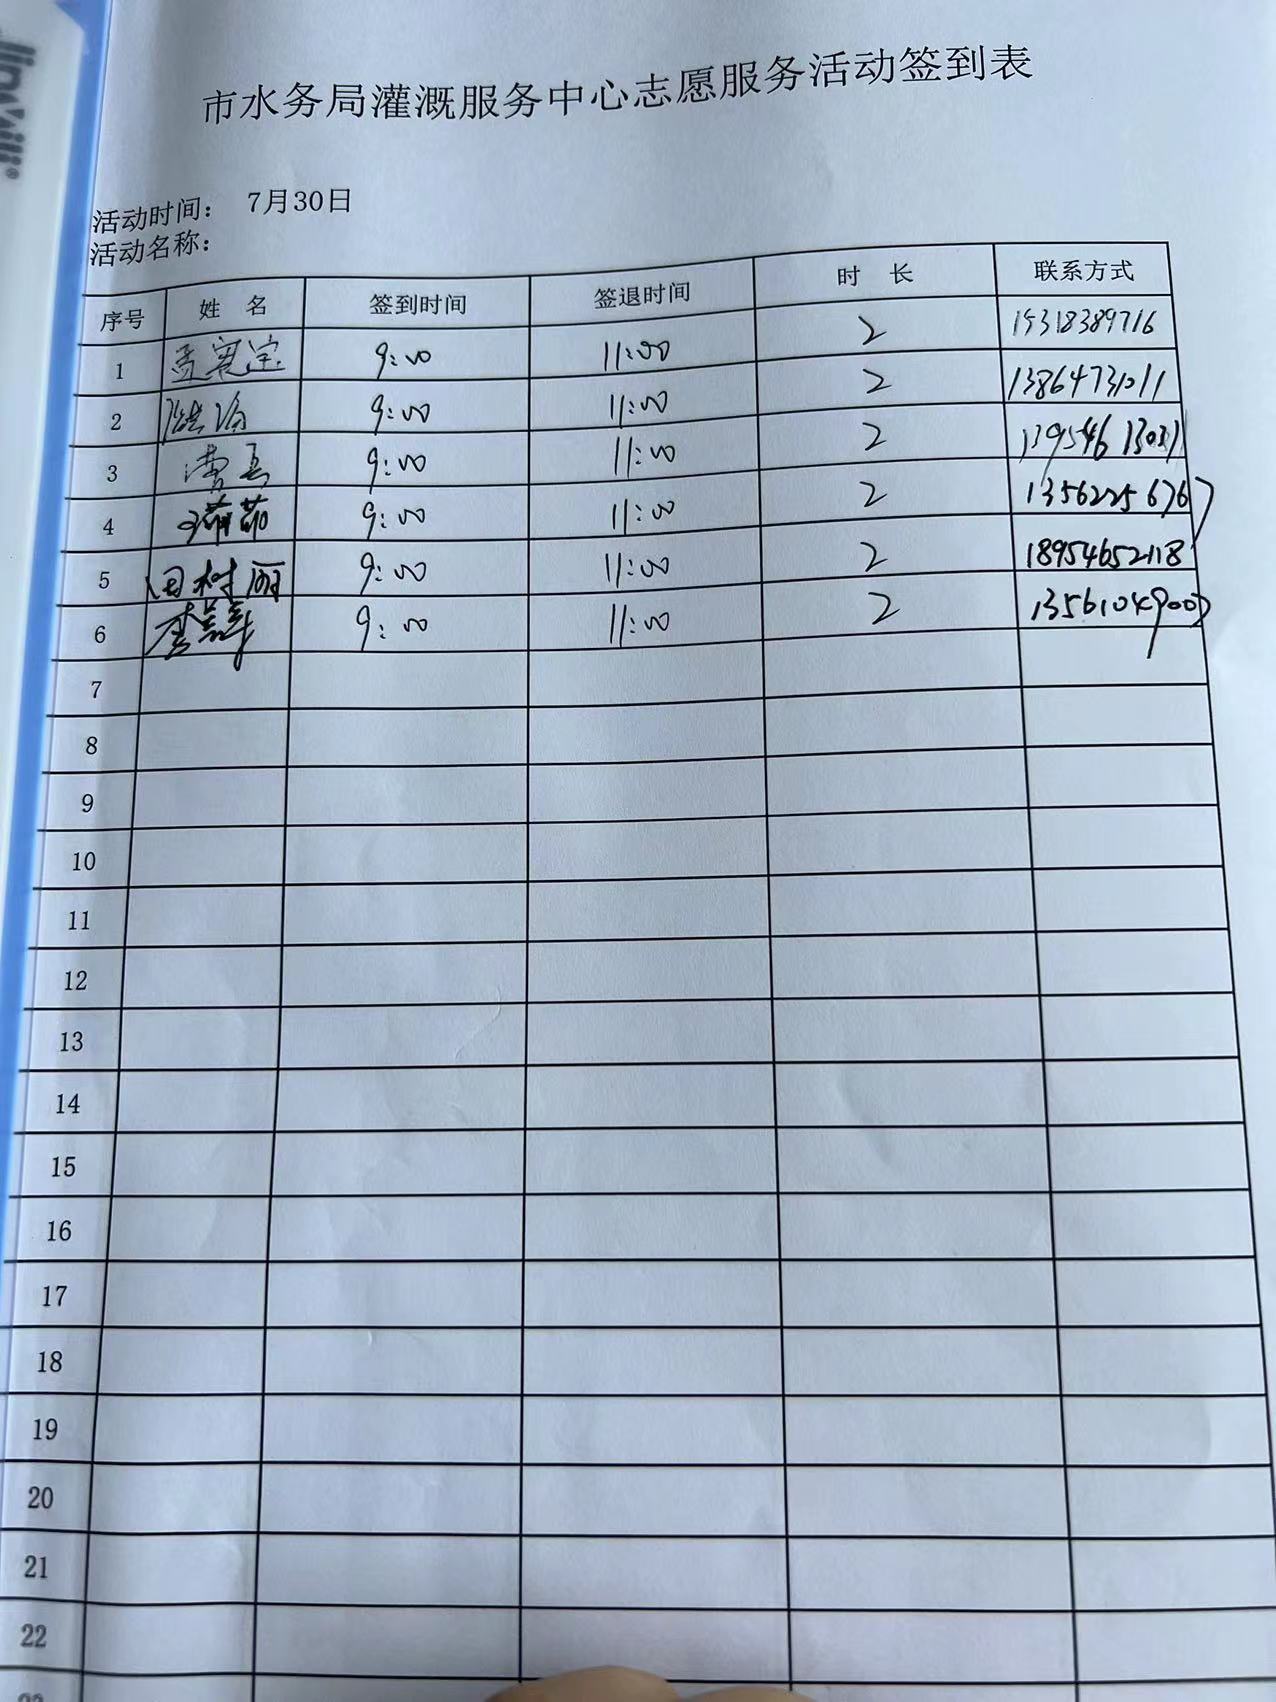 市水务局灌溉服务中心志愿服务活动签到表
活动时间： 7月30日
活动名称：
序号 姓 名 签到时间 签退时间 时 长 联系方式
1 9:00 11:00 2 15318389716
2 9:00 11:00 2 13864731011
3 曹 9:00 11:00 2
4 9:00 11:00 2 13562256767
5 田树丽 9:00 11:00 2 18954652118
6 李 9:00 11:00 2
7
8
9
10
11
12
13
14
15
16
17
18
19
20
21
22